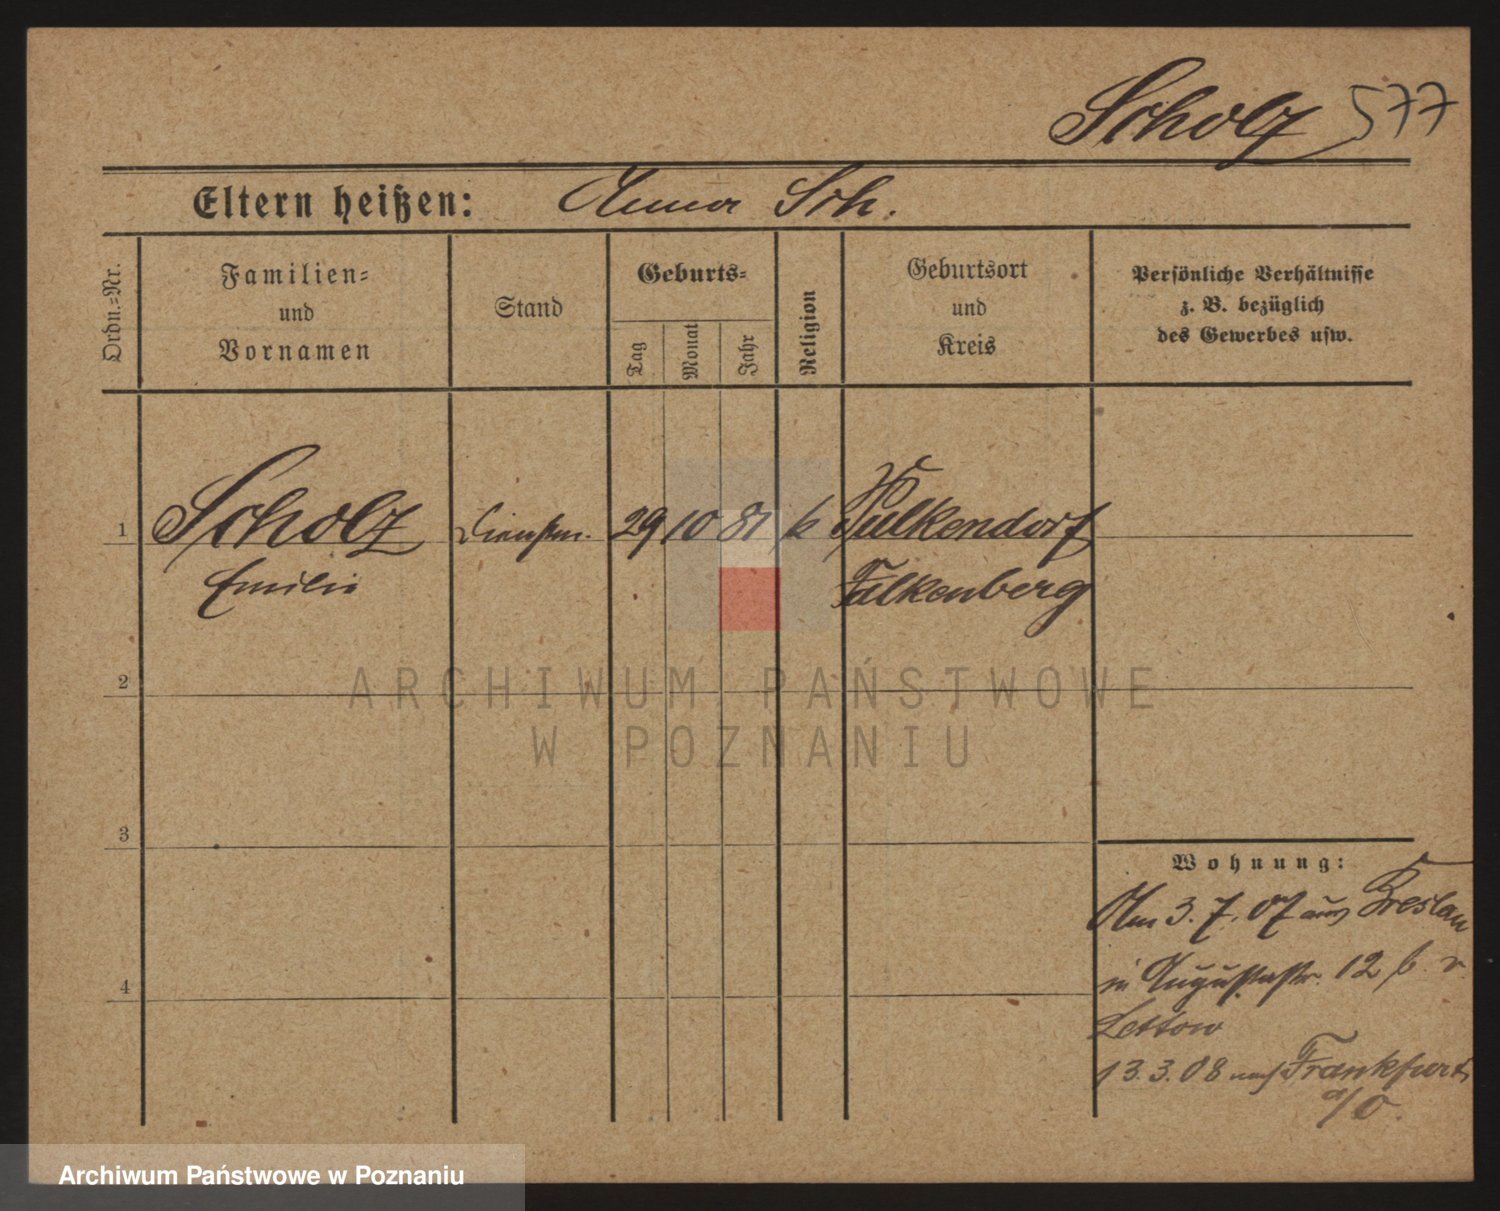 Scholz 577
Eltern heißen: Anna Sch.
Ordn.=Nr.
Familien=
und
Vornamen
Stand
Geburts=
Tag
Monat
Jahr
Religion
Geburtsort
und
Kreis
Persönliche Verhältnisse
z. B. bezüglich
des Gewerbes usw.
1 Scholz Dienstm. 29 10 81 k
Emilie Falkenberg
2
3
4
Wohnung:
Am 3.7.07 aus Breslau
in Augustastr. 12 b. v.
Lettow
13.3.08 nach Frankfurt
a/O.
ARCHIWUM PAŃSTWOWE
W POZNANIU
Archiwum Państwowe w Poznaniu